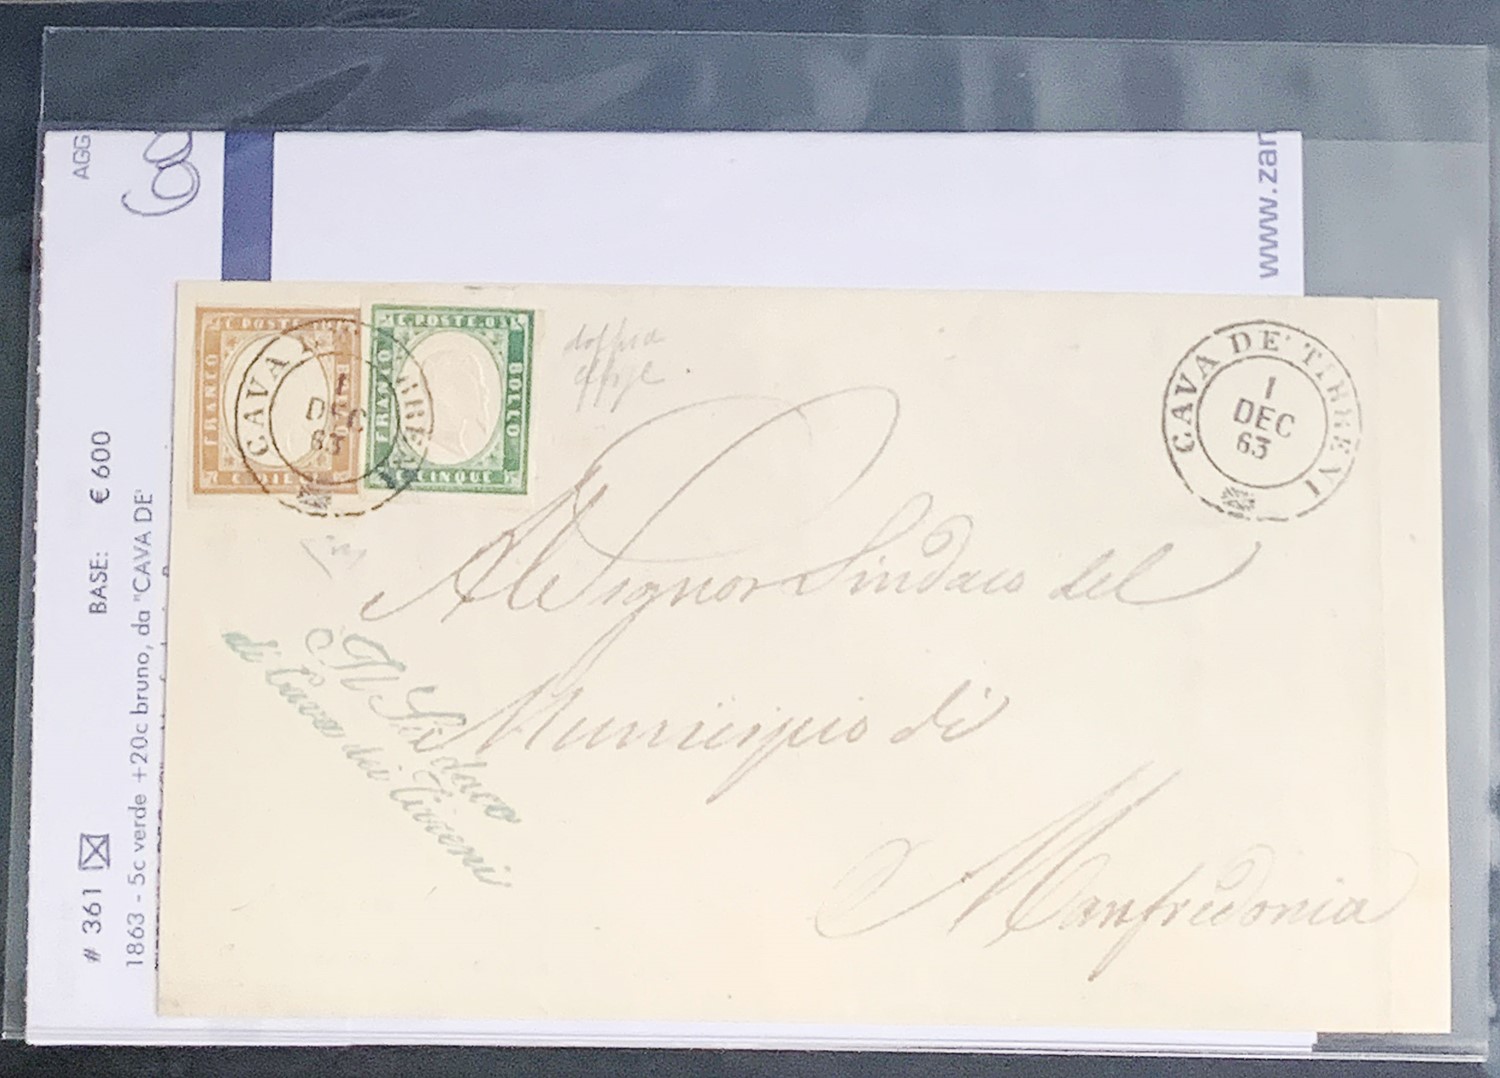 AGG
www.zan
# 361
BASE: € 600
1863 - 5c verde +20c bruno, da "CAVA DE'
C. POSTE
FRANCO
C. DIECI
C. POSTE
FRANCO
BOLLO
C. CINQUE
CAVA
1
DEC
63
doppia
effige
CAVA DE' TIRRENI
1
DEC
63
Al Signor Sindaco del
Municipio di
Manfredonia
Il Sindaco
di Cava dei Tirreni